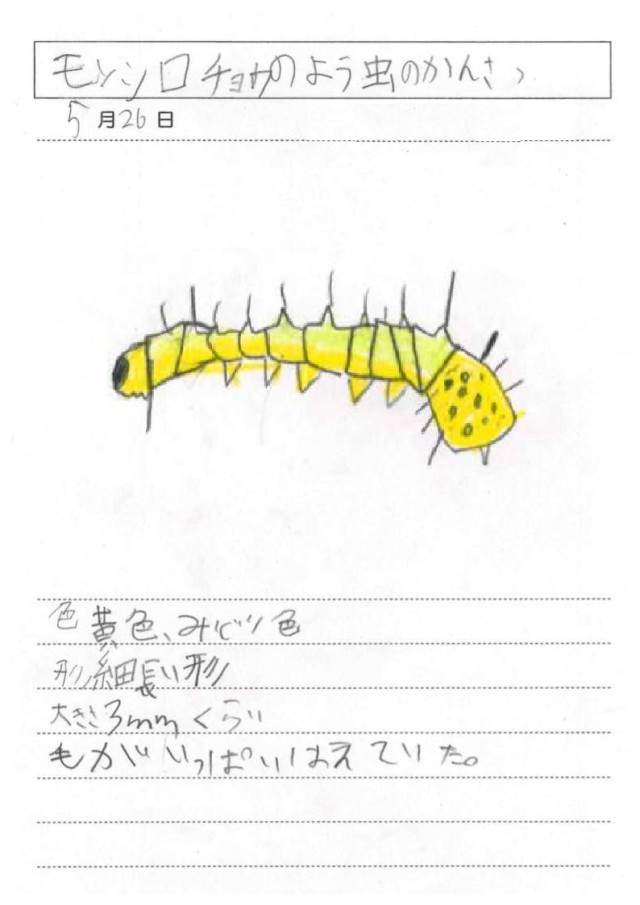 モンシロチョウのよう虫のかんさつ
5月26日
色 黄色、みどり色
形 細長い形
大きさ3mmくらい
毛がいっぱいはえていた。